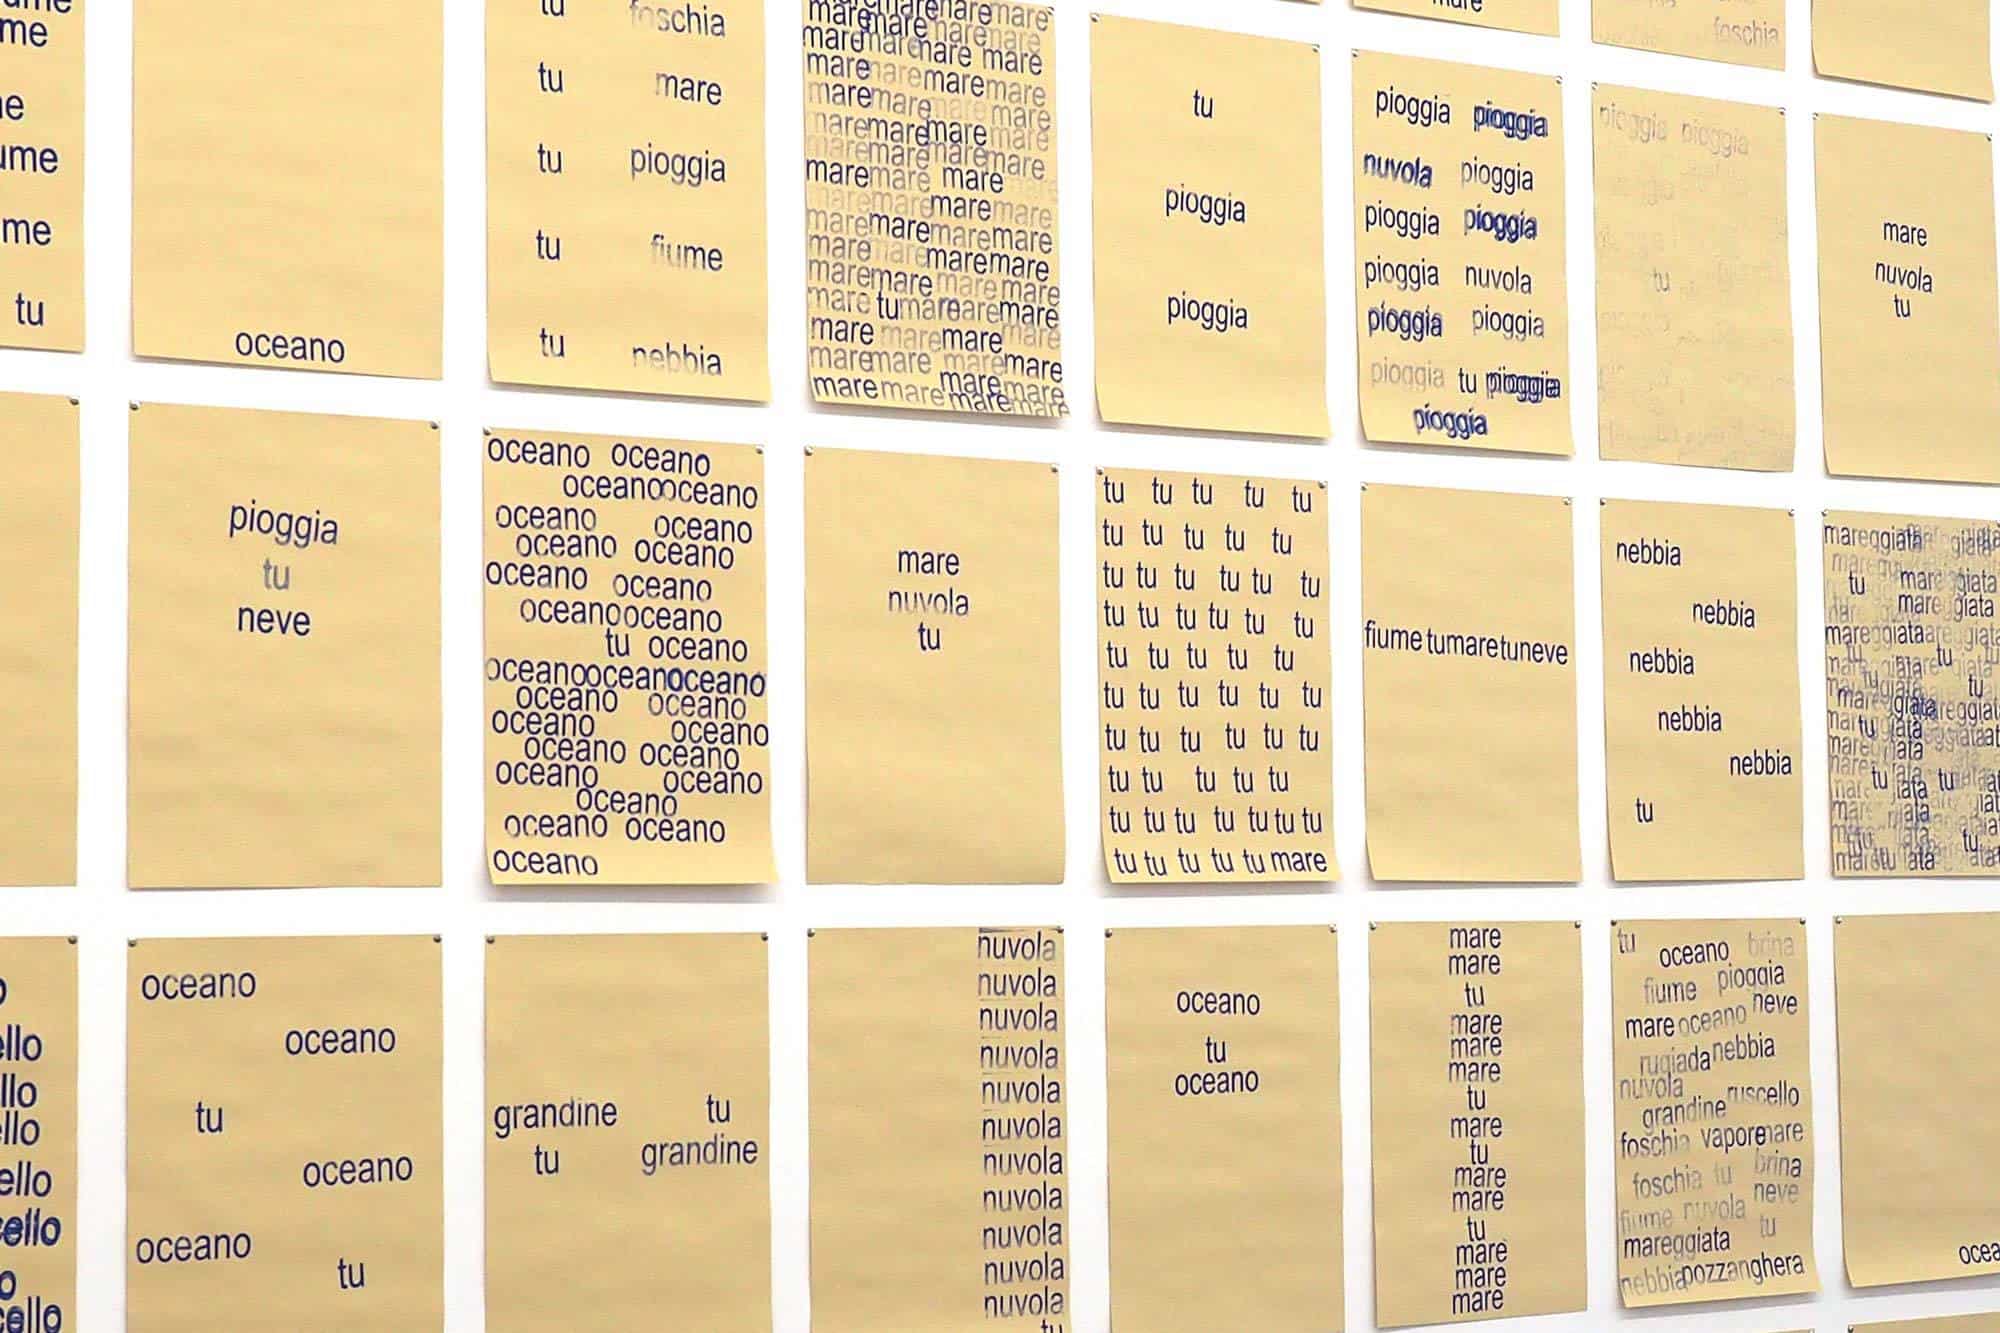 me
me
ume
me
tu
oceano
tu foschia
tu mare
tu pioggia
tu fiume
tu nebbia
mare mare mare
mare mare mare mare
mare mare mare mare
mare mare mare mare
mare mare mare mare
mare mare mare mare
mare mare mare
mare mare mare mare
mare mare mare mare
mare mare mare mare
mare mare mare mare
mare tu mare mare mare
mare mare mare mare
mare mare mare mare
mare mare mare mare
tu
pioggia
pioggia
mare
pioggia pioggia
nuvola pioggia
pioggia pioggia
pioggia nuvola
pioggia pioggia
pioggia tu pioggia
pioggia
foschia
pioggia pioggia
tu
mare
nuvola
tu
pioggia
tu
neve
oceano oceano
oceanooceano
oceano oceano
oceano oceano
oceano oceano
oceanooceano
tu oceano
oceanooceanooceano
oceano oceano
oceano oceano
oceano oceano
oceano oceano
oceano
oceano oceano
oceano
mare
nuvola
tu
tu tu tu tu tu
tu tu tu tu tu
tu tu tu tu tu tu
tu tu tu tu tu tu
tu tu tu tu tu
tu tu tu tu tu tu
tu tu tu tu tu tu
tu tu tu tu tu
tu tu tu tu tu tu tu
tu tu tu tu tu mare
fiumetumaretuneve
nebbia
nebbia
nebbia
nebbia
nebbia
tu
mareggiata
tu mareggiata
mareggiata
mareggiata
tu tu
tu tu
tu
tu tu
tu
llo
llo
llo
ello
cello
o
cello
oceano
oceano
tu
oceano
oceano
tu
grandine tu
tu grandine
nuvola
nuvola
nuvola
nuvola
nuvola
nuvola
nuvola
nuvola
nuvola
nuvola
nuvola
tu
oceano
tu
oceano
mare
mare
tu
mare
mare
mare
tu
mare
tu
mare
mare
tu
mare
mare
mare
tu oceano brina
fiume pioggia
mare oceano neve
rugiada nebbia
nuvola ruscello
grandine
foschia vapore mare
foschia tu brina
fiume nuvola neve
mareggiata tu
nebbia pozzanghera
ocea